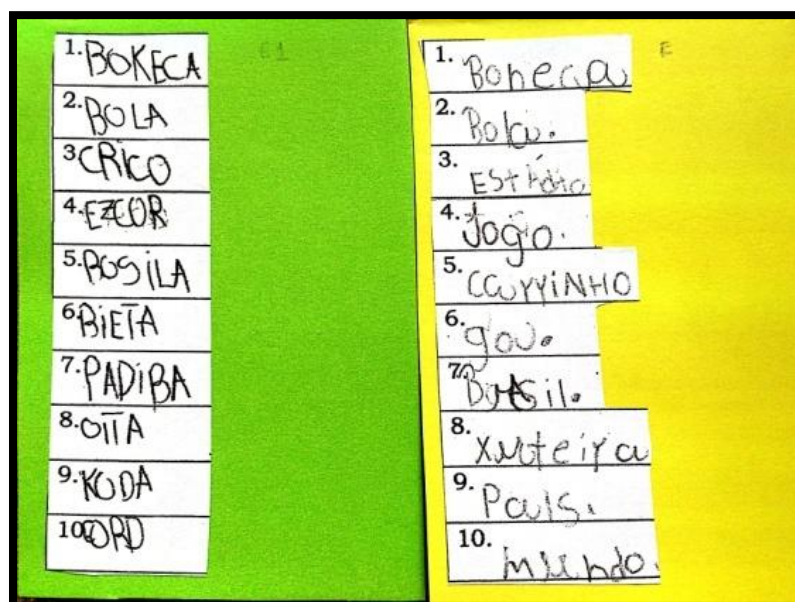 E1
1. BOKECA
2. BOLA
3 CRICO
4. EZCOR
5. BOSILA
6 BIETA
7. PADIBA
8. OITA
9. KODA
10 ORD
E
1. Boneca
2. Bola.
3. EStádio
4. Jogo.
5. CarriNHO
6. gol.
7. BrASil.
8. Xuteira
9. País.
10. mundo.